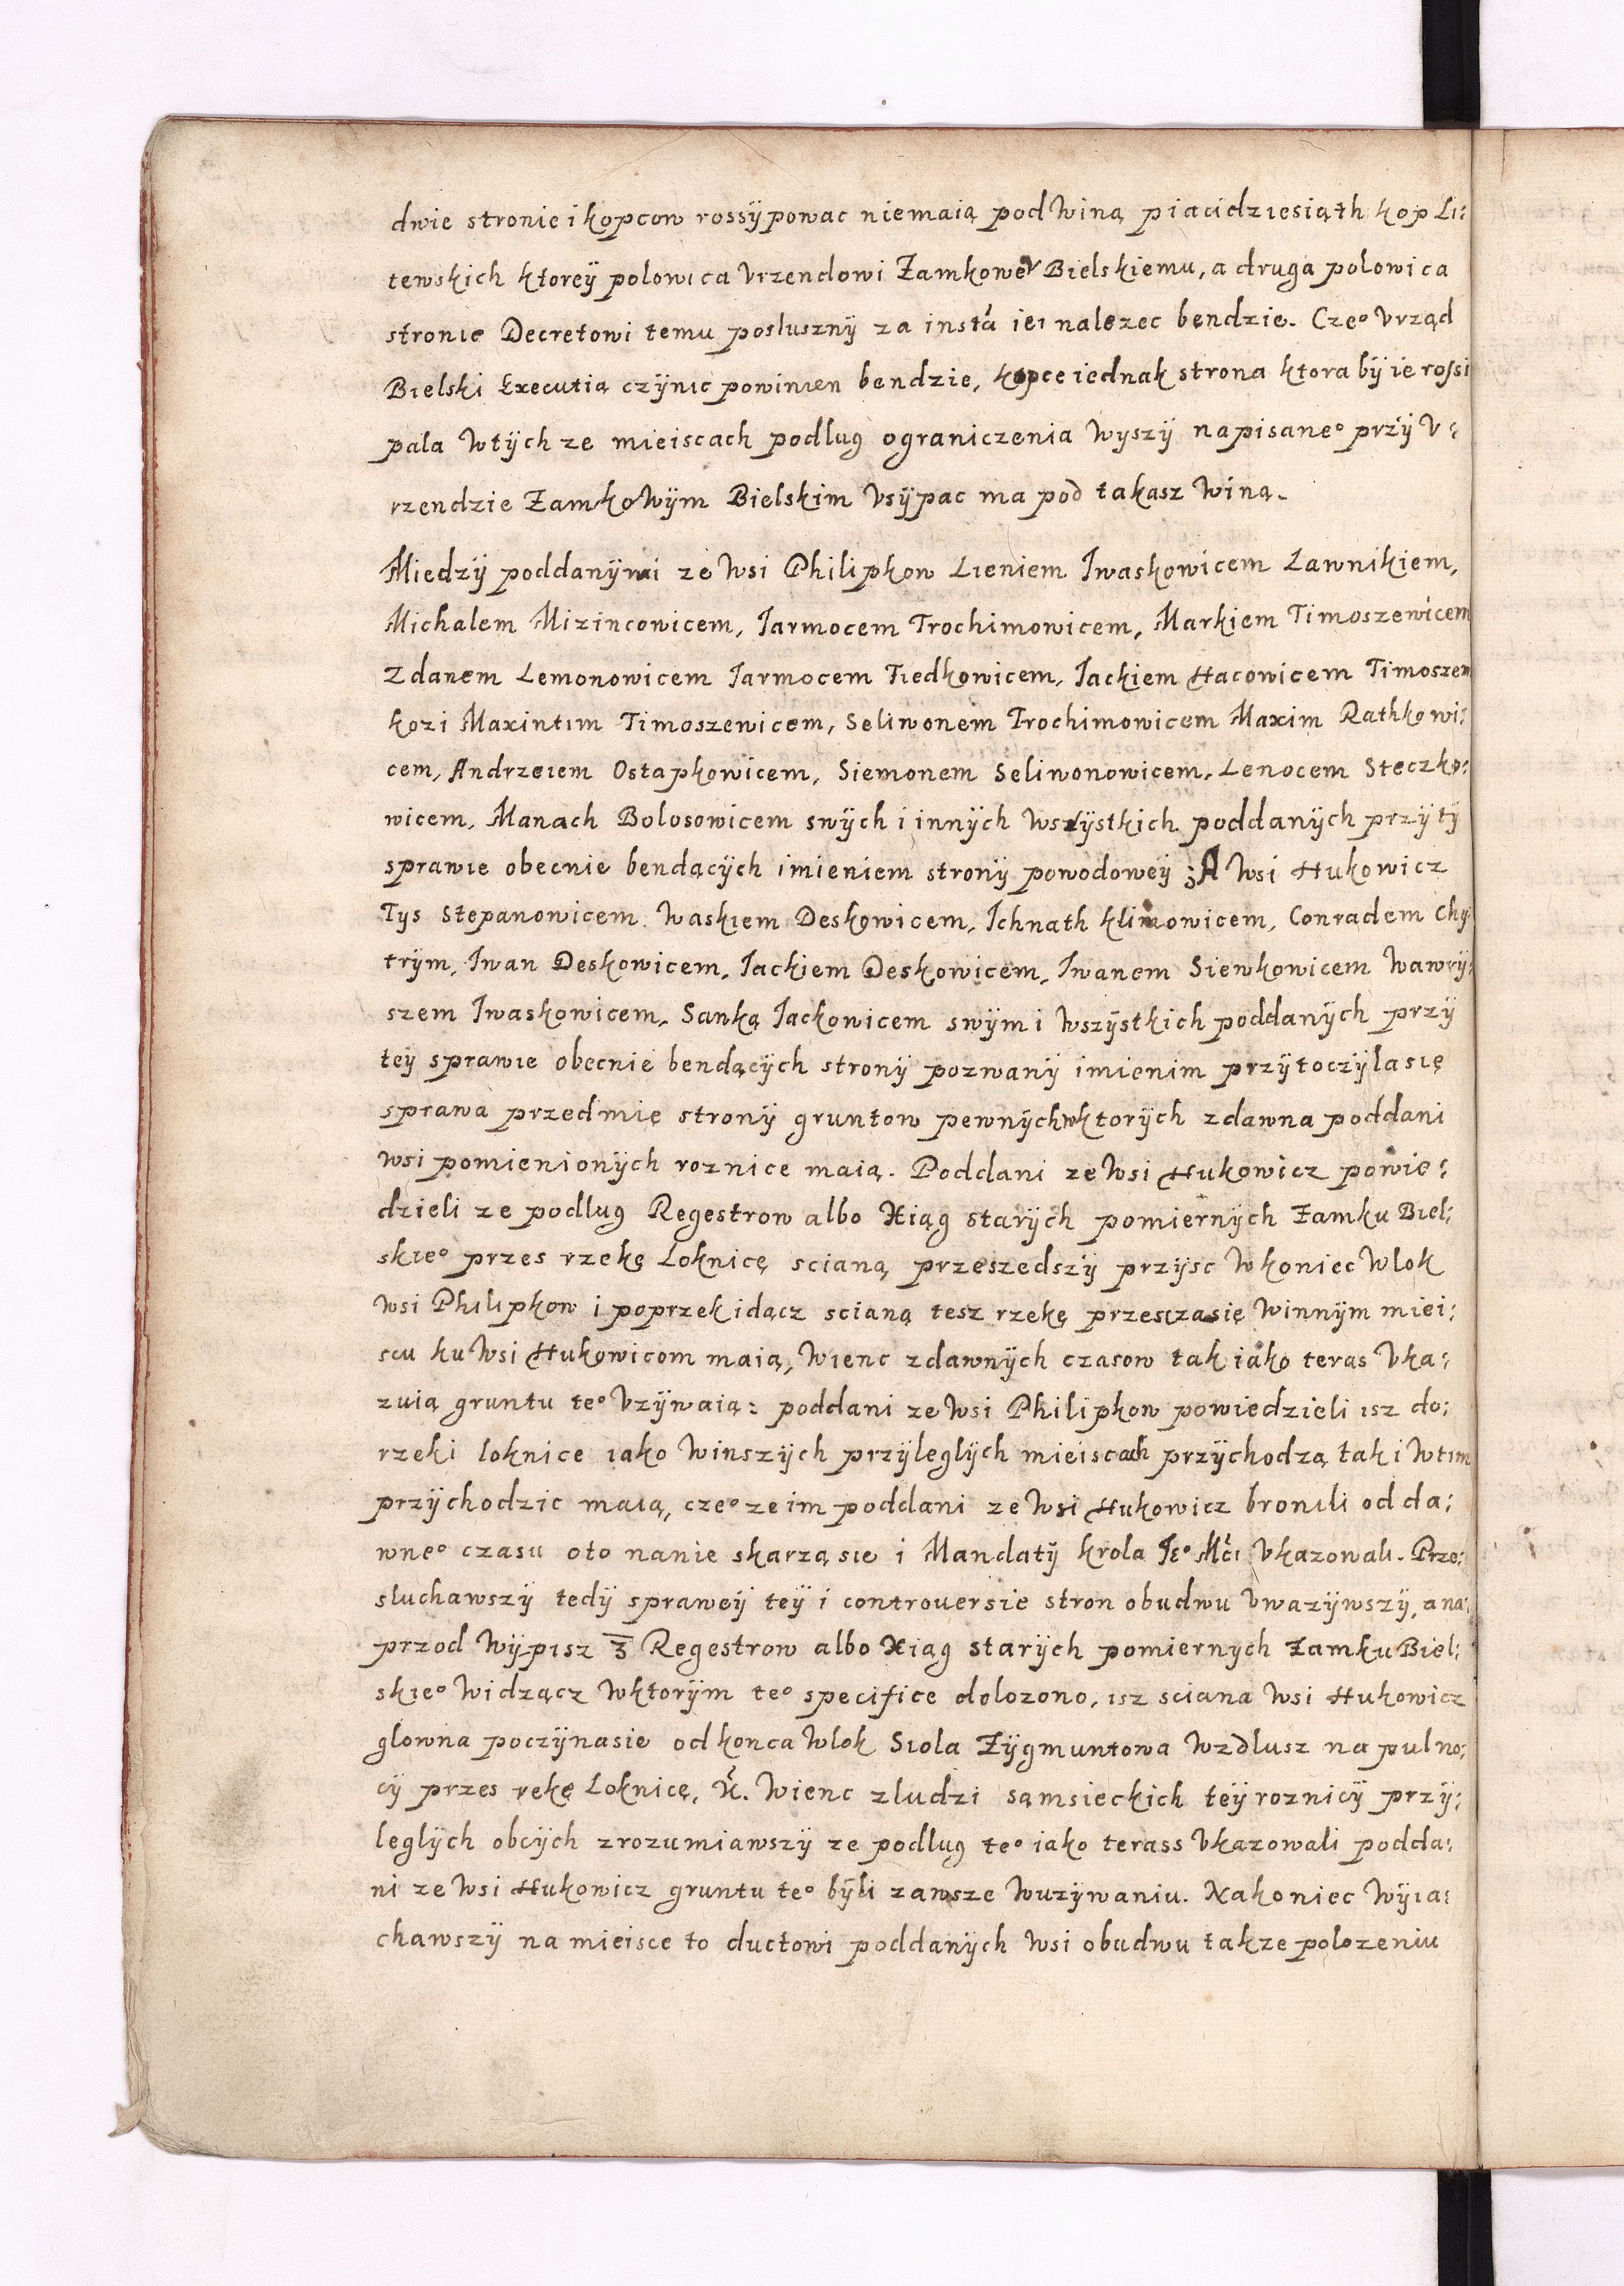 dwie stronie i kopcow rossÿpowac niemaią pod winą piacidziesiąth kop Li:
tewskich ktoreÿ polowica Vrzendowi Zamkowe Bielskiemu, a druga polowica
stronie Decretowi temu poslusznÿ za insta iei nalezec bendzie. Czeº Vrząd
Bielski Executią czÿnic powinien bendzie, kopce iednak strona ktora bÿ ie rossi
pala wtÿch ze mieiscach podlug ograniczenia wyszÿ napisaneº przÿ V:
rzendzie Zamkowÿm Bielskim Vsÿpac ma pod takasz winą.
Miedzÿ poddanÿmi ze wsi Philipkow Lieniem Iwaskowicem Lawnikiem,
Michalem Mizincowicem, Iarmocem Trochimowicem, Markiem Timoszewicem
Zdanem Lemonowicem Iarmocem Fiedkowicem, Iackiem Hacowicem Timoszem
kozi Maxintim Timoszewicem, Seliwonem Trochimowicem Maxim Rathkowi:
cem, Andrzeiem Ostapkowicem, Siemonem Seliwonowicem, Lenocem Steczko:
wicem, Manach Bolosowicem swÿch i innÿch wszÿstkich poddanÿch przÿ tÿ
sprawie obecnie bendącÿch imieniem stronÿ powodoweÿ; A wsi Hukowicz
Tys Stepanowicem Waskiem Deskowicem, Ichnath Klimowicem, Conradem Chÿ
trÿm, Iwan Deskowicem, Iackiem Deskowicem, Iwanem Siewkowicem Wawrÿ:
szem Iwaskowicem, Sanką Iackowicem swÿm i wszÿstkich poddanÿch przÿ
teÿ sprawie obecnie bendącÿch stronÿ pozwanÿ imienim przÿtoczÿla się
sprawa przedmię stronÿ gruntow pewnÿch wktorÿch zdawna poddani
wsi pomienionÿch roznice maią. Poddani ze wsi Hukowicz powie:
dzieli ze podlug Regestrow albo Xiąg starÿch pomiernÿch Zamku Biel:
skieº przes rzekę Loknicę scianą przeszedszÿ przÿsc w koniec wlok
wsi Philipkow i poprzek idącz scianą tesz rzekę przes się winnÿm miei:
scu ku wsi Hukowicom maią, wienc zdawnÿch czasow tak iako teras Vka:
zuią gruntu teº Vzÿwaią: poddani ze wsi Philipkow powiedzieli isz do:
rzeki loknice iako winszÿch przÿleglÿch mieiscach przÿchodzą tak i wtim
przÿchodzic maią, czeº ze im poddani ze wsi Hukowicz bronili od da:
wneº czasu oto nanie skarzą sie i Mandatÿ Krola Ieº Mći Vkazowali. Prze:
sluchawszÿ tedÿ spraweÿ teÿ i controuersie stron obudwu Vwazÿwszÿ, a na:
przod wÿpisz z Regestrow albo Xiąg starÿch pomiernych Zamku Biel:
skieº widzącz wktorÿm teº specifice dolozono, isz sciana wsi Hukowicz
glowna poczÿnasie od konca wlok Siola Zÿgmuntowa wzdlusz na pulno:
cÿ przes rekę Loknicę, &. wienc zludzi sąmsieckich teÿ roznicÿ przÿ:
leglÿch obcÿch zrozumiawszÿ ze podlug teº iako terass Vkazowali podda:
ni ze wsi Hukowicz gruntu teº bÿli zawsze wuzÿwaniu. Nakoniec wÿia:
chawszÿ na mieisce to ductowi poddanÿch wsi obudwu takze polozeniu